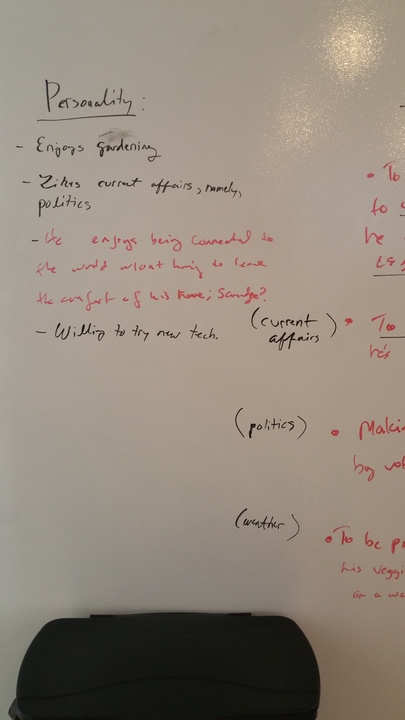 Personality:
- Enjoys gardening
- Likes current affairs, namely,
politics
- He enjoys being connected to
the world without having to leave
the comfort of his home;
- Willing to try new tech.
(current
affairs)
(politics)
(weather)
• To
to
he
• To
he's
• Makin
by vo
• To be p
his veggi
on a we